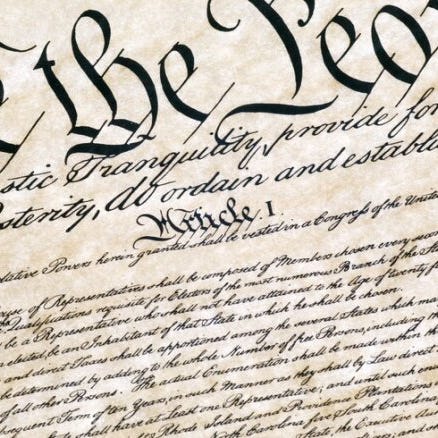 the Peo
stic Tranquility, provide for
sterity, do ordain and establ
Article I.
slative Powers herein granted shall be vested in a Congress of the United
ouse of Representatives shall be composed of Members chosen every secon
Qualifications requisite for Electors of the most numerous Branch of the Sta
be a Representative who shall not have attained to the Age of twenty fi
elected, be an Inhabitant of that State in which he shall be chosen.
and direct Taxes shall be apportioned among the several States which ma
be determined by adding to the whole Number of free Persons, including th
of all other Persons. The actual Enumeration shall be made within th
sequent Term of ten Years, in such Manner as they shall by Law direct
shall have at Least one Representative; and until such en
Rhode Island and Providence Plantations
North Carolina five, South Carolina
State, the Executive Au